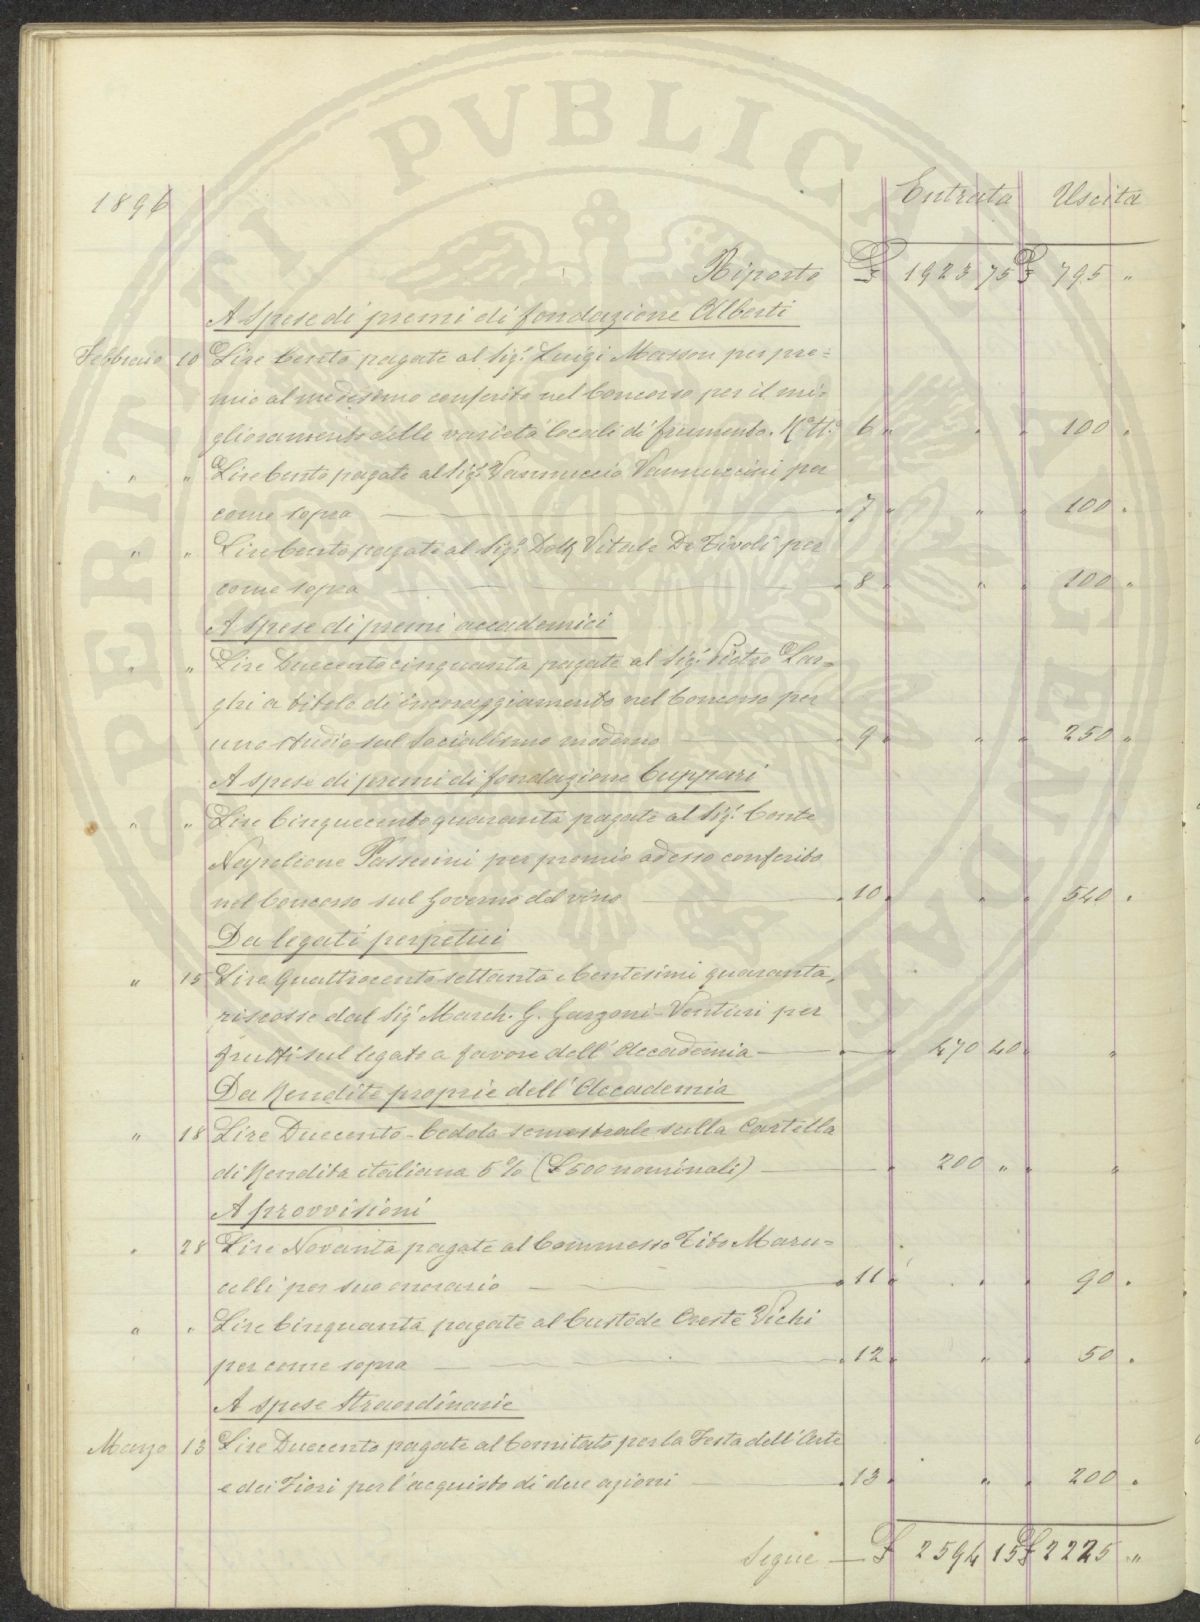 1896 Entrata Uscita
Riporto £ 1923 75 £ 795 "
A spese di premi di fondazione Alberti
Febbraio 10 Lire Cento pagate al Sig.r Luigi Masson per pre=
mio al medesimo conferito nel Concorso per il mi-
glioramento delle varietà locali di frumento. 6 " " " 100 "
" " Lire Cento pagate al Sig.r Vannuccio Vannuccini per
come sopra — " 7 " " " 100 "
" " Lire Cento pagate al Sig.r Dott. Vitale De Tivoli per
come sopra — " 8 " " " 100 "
A spese di premi accademici
" " Lire Duecentocinquanta pagate al Sig.r Pietro Lar=
ghi a titolo di incoraggiamento nel Concorso per
uno studio sul Socialismo moderno — " 9 " " " 250 "
A spese di premi di fondazione Cuppari
" " Lire Cinquecentoquaranta pagate al Sig.r Conte
Napoleone Passerini per premio ad esso conferito
nel Concorso sul Governo del vino — " 10 " " " 540 "
Da legati perpetui
" 15 Lire Quattrocento settanta e Centesimi quaranta,
riscosse dal Sig.r March. G. Garzoni-Venturi per
frutti sul legato a favore dell'Accademia — " " 470 40 " "
Da Rendite proprie dell'Accademia
" 18 Lire Duecento - Cedola semestrale sulla Cartella
di Rendita italiana 5% (£ 500 nominali) — " 200 " " "
A provvisioni
" 28 Lire Novanta pagate al Commesso Tito Maru=
celli per suo onorario — " 11 " " " 90 "
" " Lire Cinquanta pagate al Custode Oreste Vichi
per come sopra — " 12 " " " 50 "
A spese Straordinarie
Marzo 13 Lire Duecento pagate al Comitato per la Festa dell'Arte
e dei Fiori per l'acquisto di due azioni — " 13 " " " 200 "
Segue — £ 2594 15 £ 2225 "
PROSPERITATI PVBLICAE AVGENDAE